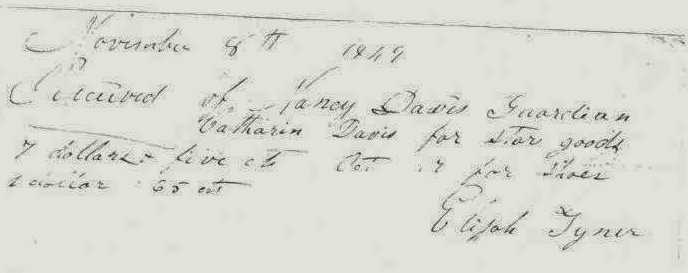 November 8th 1849
Received of Nancy Davis Guardian
Catharin Davis for stor goods
7 dollars five cts Oct 17 for shoes
1 dollar 65 ct
Elijah Tyner